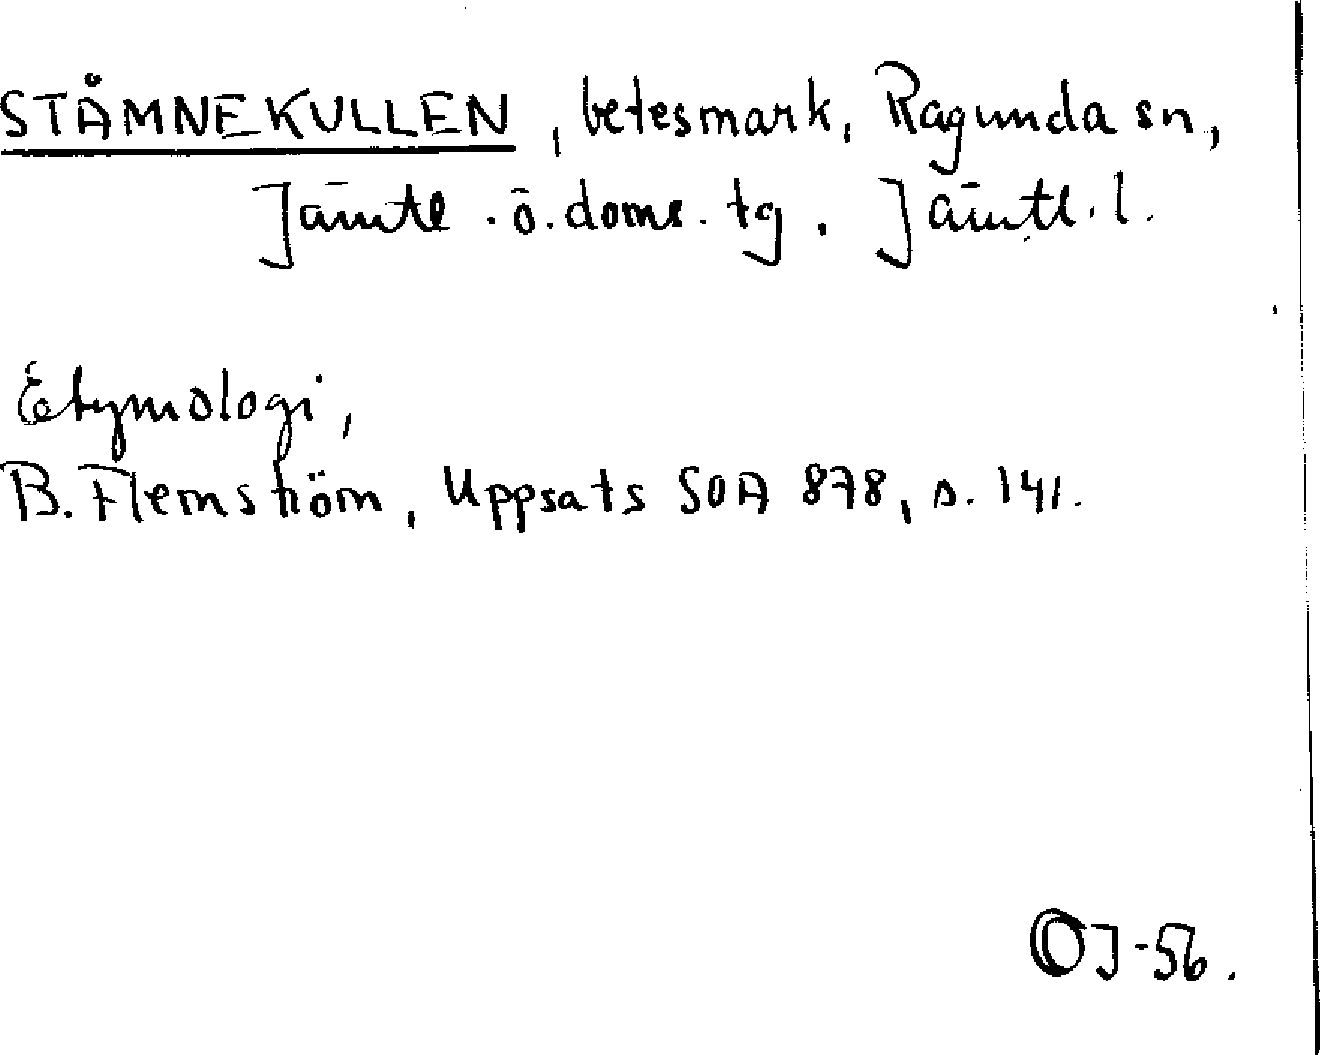 STÅMNEKULLEN, betesmark, Ragunda sn,
Jämtl. ö. doms. tg. Jämtl. l.
Etymologi,
B. Flemström, Uppsats SOA 878, s. 141.
OJ-56.